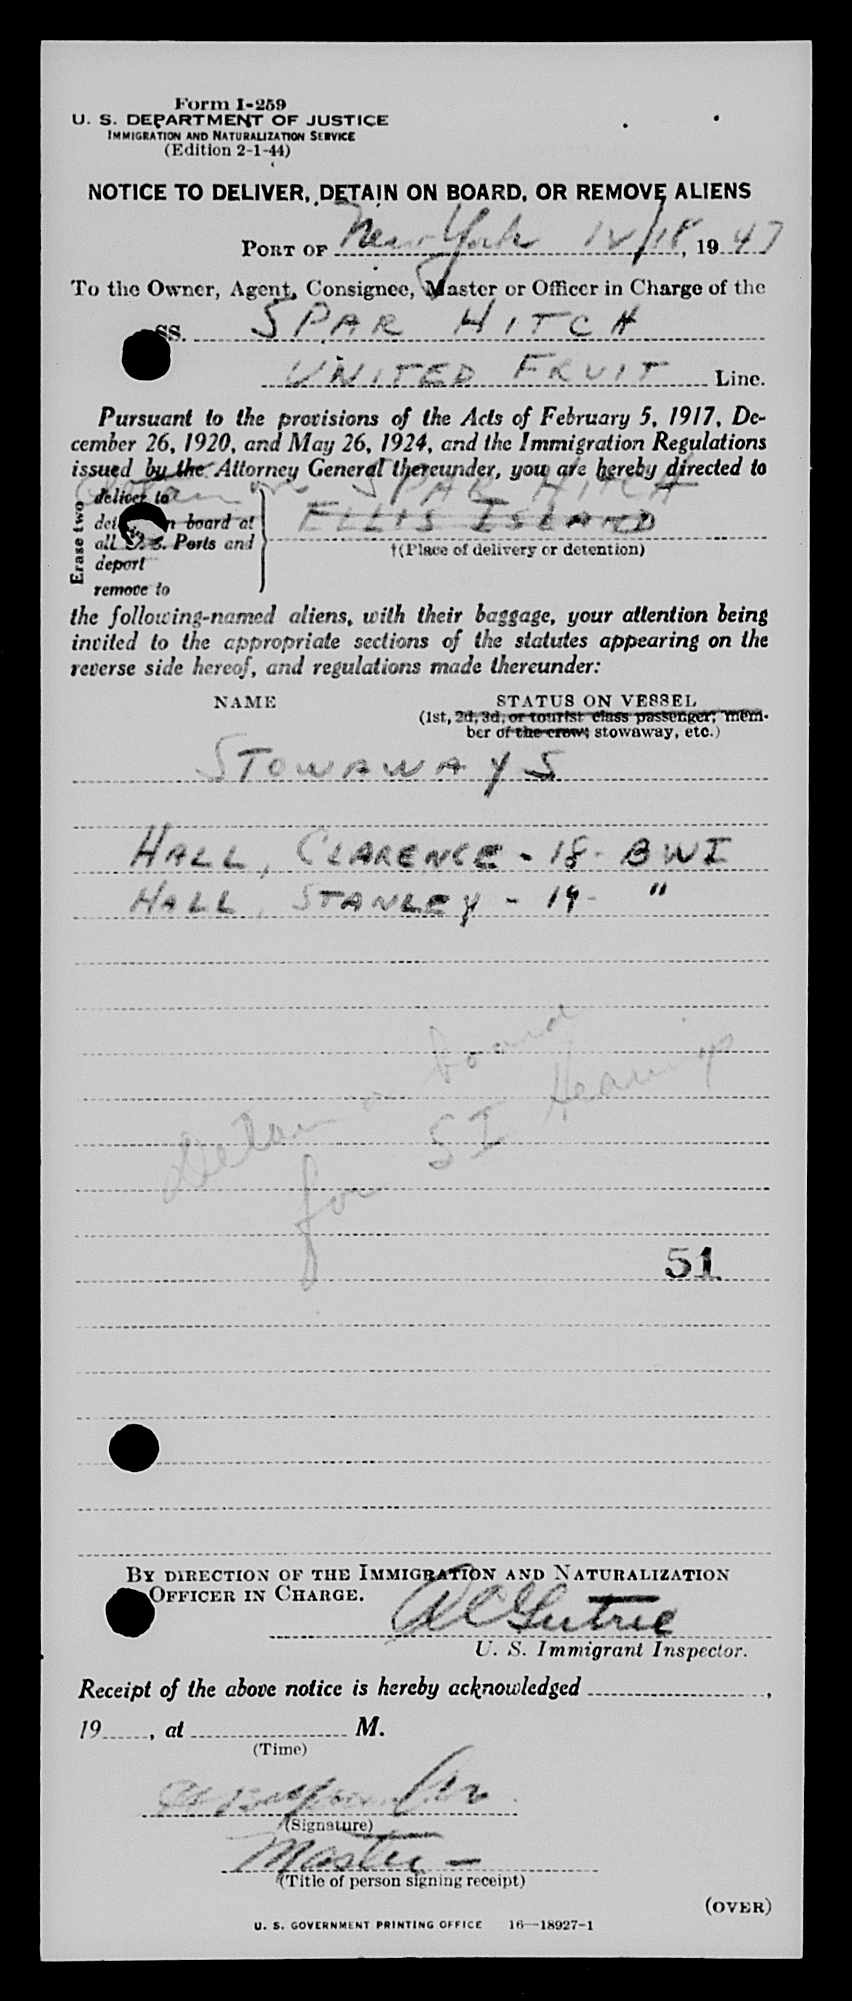 Form I-259
U. S. DEPARTMENT OF JUSTICE
IMMIGRATION AND NATURALIZATION SERVICE
(Edition 2-1-44)
NOTICE TO DELIVER, DETAIN ON BOARD, OR REMOVE ALIENS
PORT OF New York 12/18, 1947
To the Owner, Agent, Consignee, Master or Officer in Charge of the
SS. SPAR HITCH
UNITED FRUIT Line.
Pursuant to the provisions of the Acts of February 5, 1917, De-
cember 26, 1920, and May 26, 1924, and the Immigration Regulations
issued by the Attorney General thereunder, you are hereby directed to
Detain on SPAR HITCH
Erase two
deliver to
det n board at
all U. S. Ports and
deport
remove to
ELLIS ISLAND
†(Place of delivery or detention)
the following-named aliens, with their baggage, your attention being
invited to the appropriate sections of the statutes appearing on the
reverse side hereof, and regulations made thereunder:
NAME STATUS ON VESSEL
(1st, 2d, 3d, or tourist class passenger, mem-
ber of the crew, stowaway, etc.)
STOWAWAYS
HALL, CLARENCE - 18 - BWI
HALL, STANLEY - 19 - "
Detain on board
for SI Hearing
51
BY DIRECTION OF THE IMMIGRATION AND NATURALIZATION
OFFICER IN CHARGE.
U. S. Immigrant Inspector.
Receipt of the above notice is hereby acknowledged ,
19 , at M.
(Time)
(Signature)
Master -
(Title of person signing receipt)
(OVER)
U. S. GOVERNMENT PRINTING OFFICE 16—18927-1